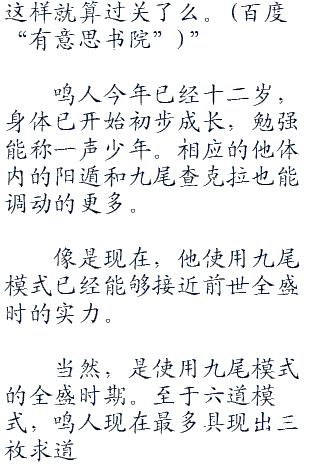 这样就算过关了么。(百度
“有意思书院”)”
鸣人今年已经十二岁，
身体已开始初步成长，勉强
能称一声少年。相应的他体
内的阳遁和九尾查克拉也能
调动的更多。
像是现在，他使用九尾
模式已经能够接近前世全盛
时的实力。
当然，是使用九尾模式
的全盛时期。至于六道模
式，鸣人现在最多具现出三
枚求道